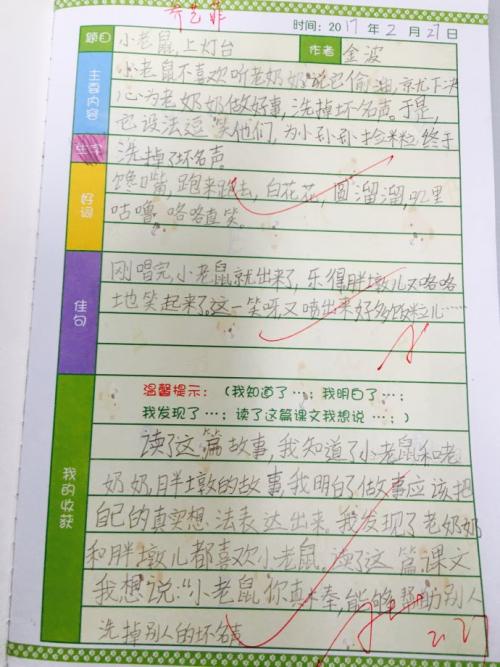 乔艺菲
时间：2017年2月27日
题目 小老鼠,上灯台 作者 金波
主要内容
小老鼠不喜欢听老奶奶说它偷油,就下决
心为老奶奶做好事,洗掉坏名声。于是,
它设法逗笑他们,为小孙孙捡米粒,终于
洗掉了坏名声
好词
馋嘴,跑来跑去,白花花,圆溜溜,叽里
咕噜,咯咯直笑。
佳句
刚唱完,小老鼠就出来了,乐得胖墩儿又咯咯
地笑起来了。这一笑呀又喷出来好多饭粒儿……
温馨提示：（我知道了…；我明白了…；
我发现了…；读了这篇课文我想说…；）
我的收获
读了这篇故事,我知道了小老鼠和老
奶奶,胖墩的故事,我明白了做事应该把
自己的真实想法表达出来。我发现了老奶奶
和胖墩儿都喜欢小老鼠。读了这篇课文
我想说:“小老鼠你真棒,能够帮助别人
洗掉别人的坏名声
2.27